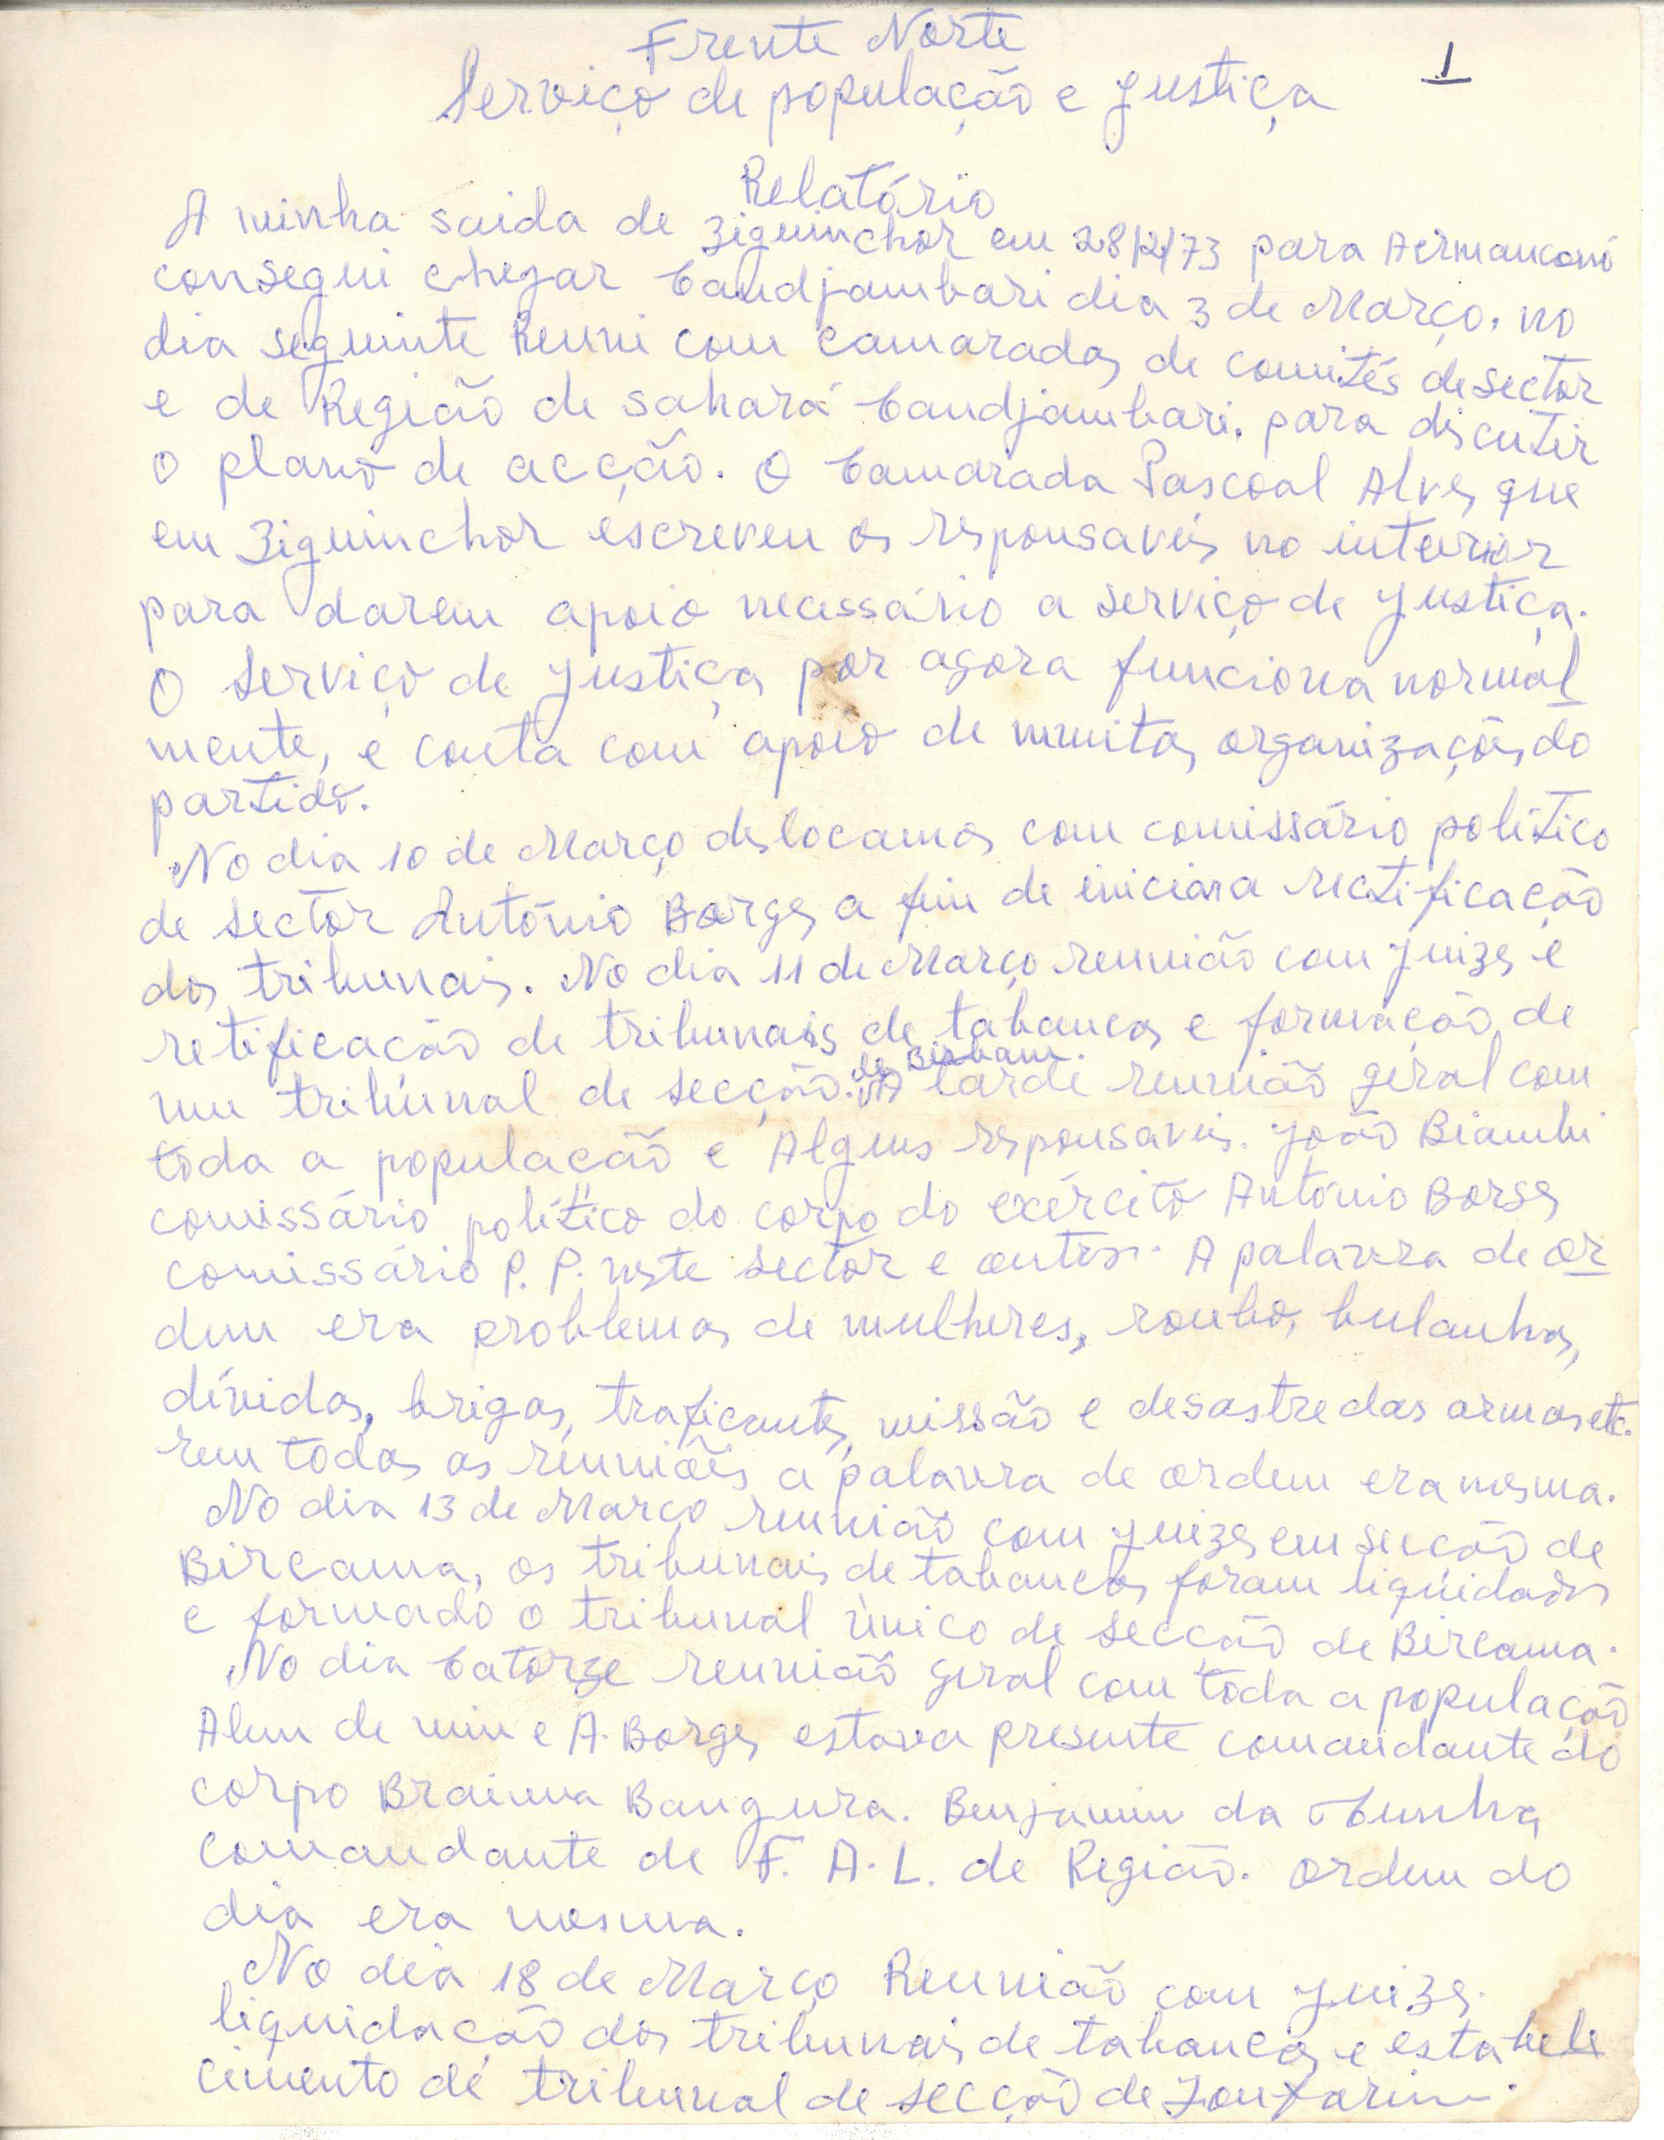 Frente Norte
1
Serviço de população e justiça
Relatório
A minha saida de Ziguinchor em 28/2/73 para Hermancono
consegui chegar Candjambari dia 3 de Março. no
dia seguinte Reuni com camaradas de comités de sector
e de Região de sahará Candjambari. para discutir
o plano de acção. O Camarada Pascoal Alves que
em Ziguinchor escreveu os responsaveis no interior
para darem apoio necessário a serviço de justiça.
O serviço de justiça por agora funciona normal
mente, e conta com apoio de muitas organizações do
partido.
No dia 10 de Março deslocamos com comissário politico
de sector António Borges a fim de iniciar a rectificação
dos tribunais. No dia 11 de Março reunião com juizes e
retificação de tribunais de tabancas e formação de
um tribunal de secção. de A tarde reunião geral com
toda a população e Alguns responsaveis. João Biambi
comissário politico do corpo do exército António Borges
comissário P. P. neste sector e outros. A palavra de or
dem era problemas de mulheres, roubo, bulanhas,
dívidas, brigas, traficantes, missão e desastre das armas etc.
em todas as reuniões a palavra de ordem era mesma.
No dia 13 de Março reunião com juizes em secção de
Bircama, os tribunais de tabancas foram liquidados
e formado o tribunal único de secção de Bircama.
No dia Catorze reunião geral com toda a população
Alem de mim e A. Borges estava presente comandante do
corpo Braima Bangura. Benjamim da Cunha,
comandante de F. A. L. de Região. ordem do
dia era mesma.
No dia 18 de Março Reunião com juizes.
liquidação dos tribunais de tabancas e estabele
cimento de tribunal de secção de